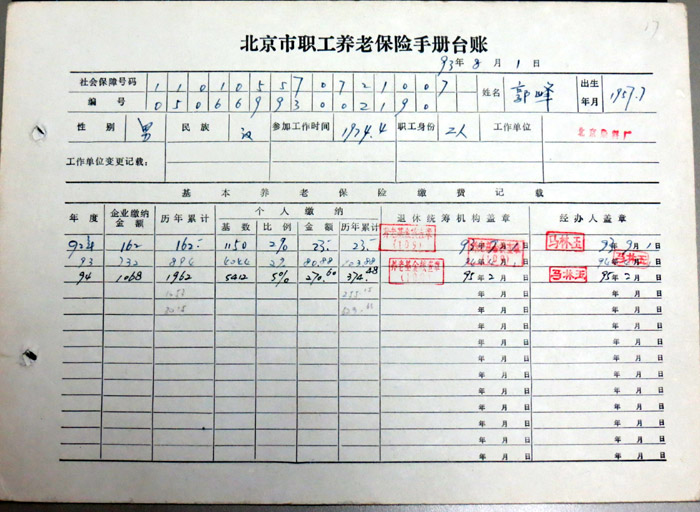 17
北京市职工养老保险手册台账
93年8月1日
社会保障号码 110105570721007 姓名 郭峰 出生年月 1957.7
编号 05066993002190
性别 男 民族 汉 参加工作时间 1974.4 职工身份 工人 工作单位
工作单位变更记载:
基本养老保险缴费记载
年度 企业缴纳金额 历年累计 个人缴纳 退休统筹机构盖章 经办人盖章
基数 比例 金额 历年累计
92年 162 162.- 1150 2% 23.- 23.- 93年9月1日 马林玉 93年9月1日
93 732 894 4044 2% 80.88 103.88 94年2月日 94年2月日 马林玉
94 1068 1962 5412 5% 270.60 374.48 95年2月日 马林玉 95年2月日
年月日 年月日
年月日 年月日
年月日 年月日
年月日 年月日
年月日 年月日
年月日 年月日
年月日 年月日
年月日 年月日
年月日 年月日
年月日 年月日